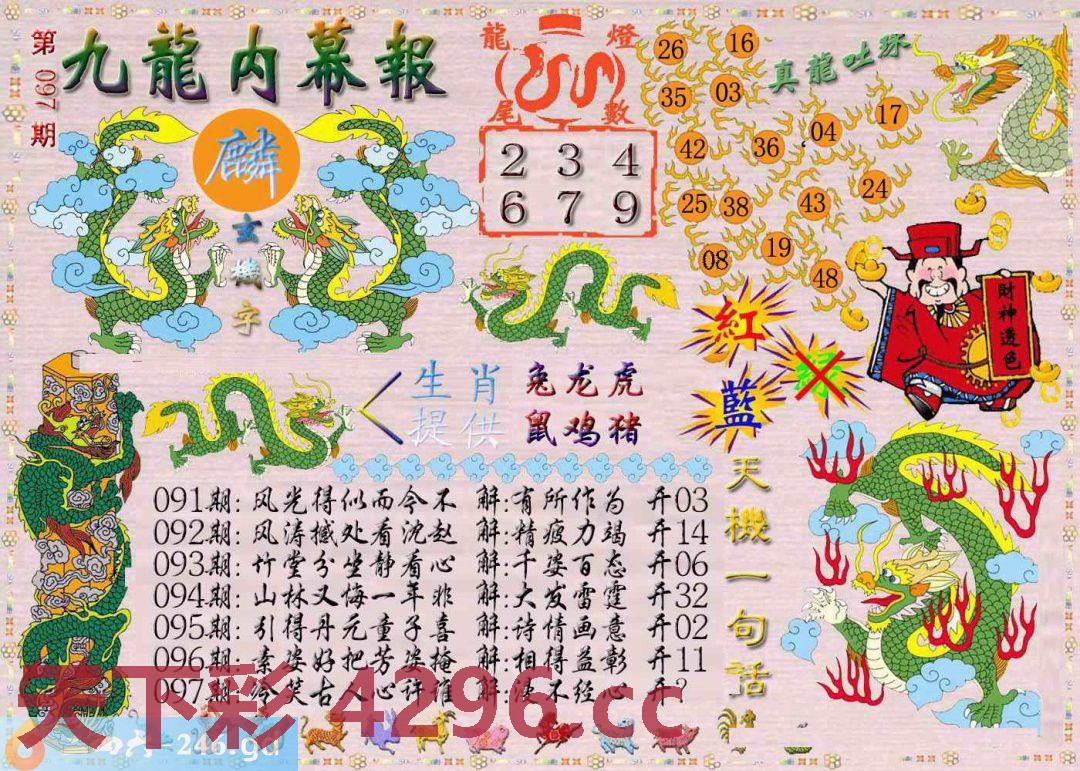 第097期
九龍内幕報
麟
玄機字
龍燈
尾數
2 3 4
6 7 9
真龍吐珠
26 16
35 03
42 36 04 17
25 38 43 24
08 19 48
紅
藍
绿
財神透色
生肖提供
兔龙虎
鼠鸡猪
天機一句话
091期:风光得似而今不 解:有所作为 开03
092期:风涛撼处看沈赵 解:精疲力竭 开14
093期:竹堂分坐静看心 解:千姿百态 开06
094期:山林又悔一年非 解:大发雷霆 开32
095期:引得丹元童子喜 解:诗情画意 开02
096期:素姿好把芳姿掩 解:相得益彰 开11
097期:冷笑古人心许谁 解:漫不经心 开?
天下彩 4296.cc
=246.gd